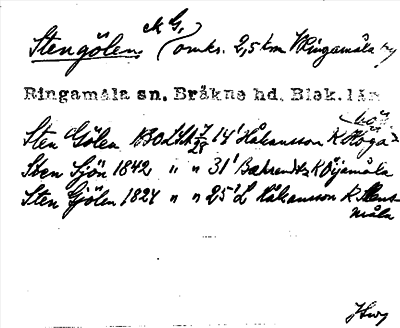 Stengölen, NG. (omkr. 2,5 km V Ringamåla ky
Ringamåla sn. Bräkne hd. Blek. län
Sten Gölen 14' Håkansson K
Sten Sjön 1842 " " 31' Bæhrendtz K Öijemåla
Sten Gjölen 1824 " " 25' L Håkansson K Stens
måla